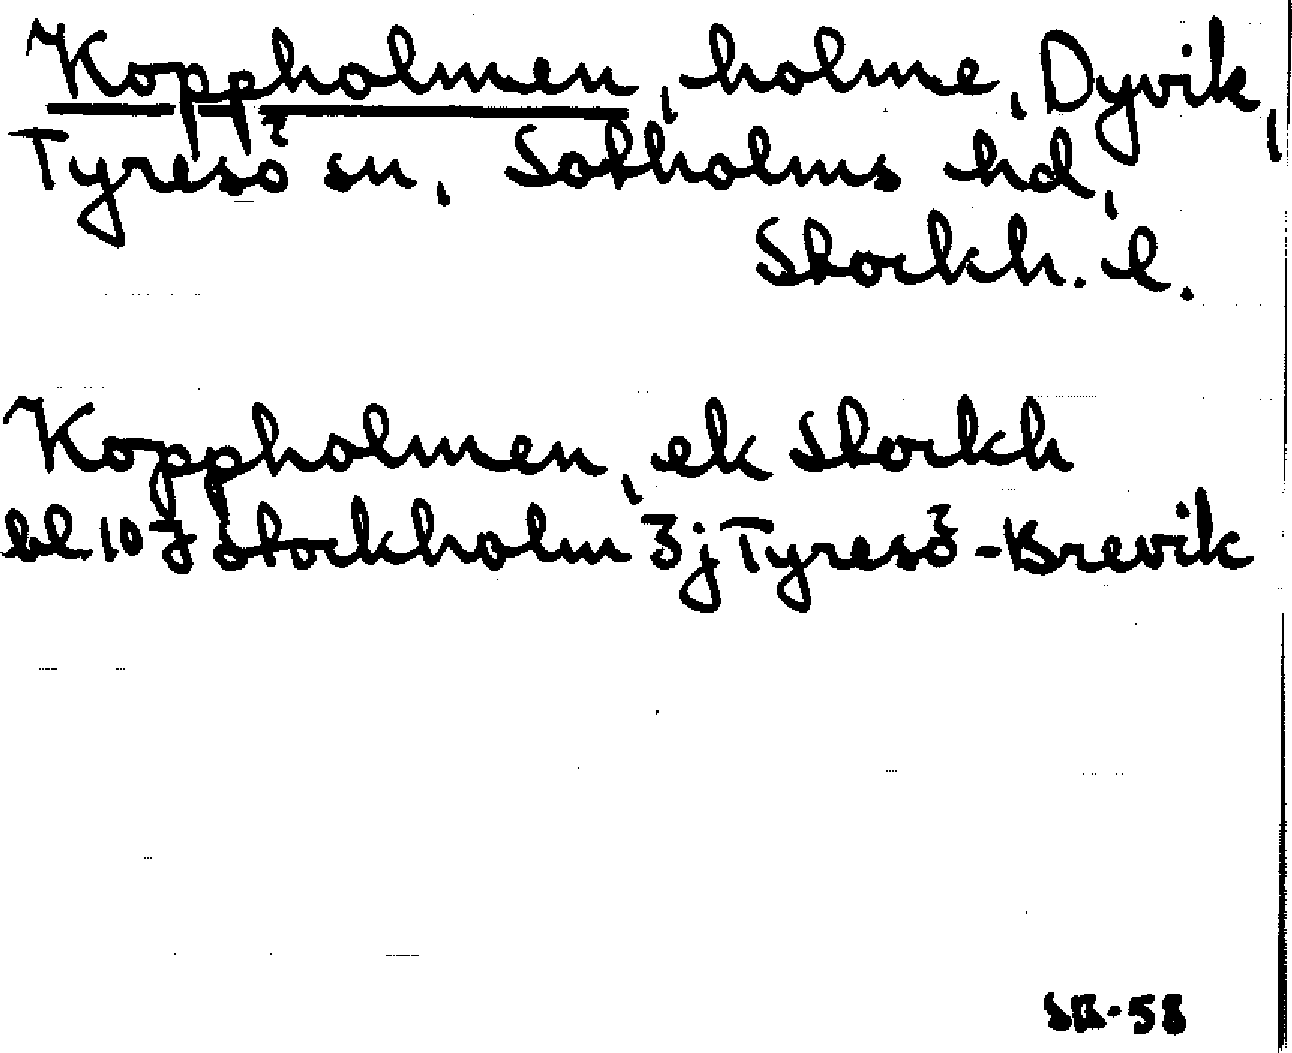 Koppholmen, holme, Dyvik,
Tyresö sn, Sotholms hd,
Stockh. l.
Koppholmen, ek Stockh
bl 10 I Stockholm 3j Tyresö-Brevik